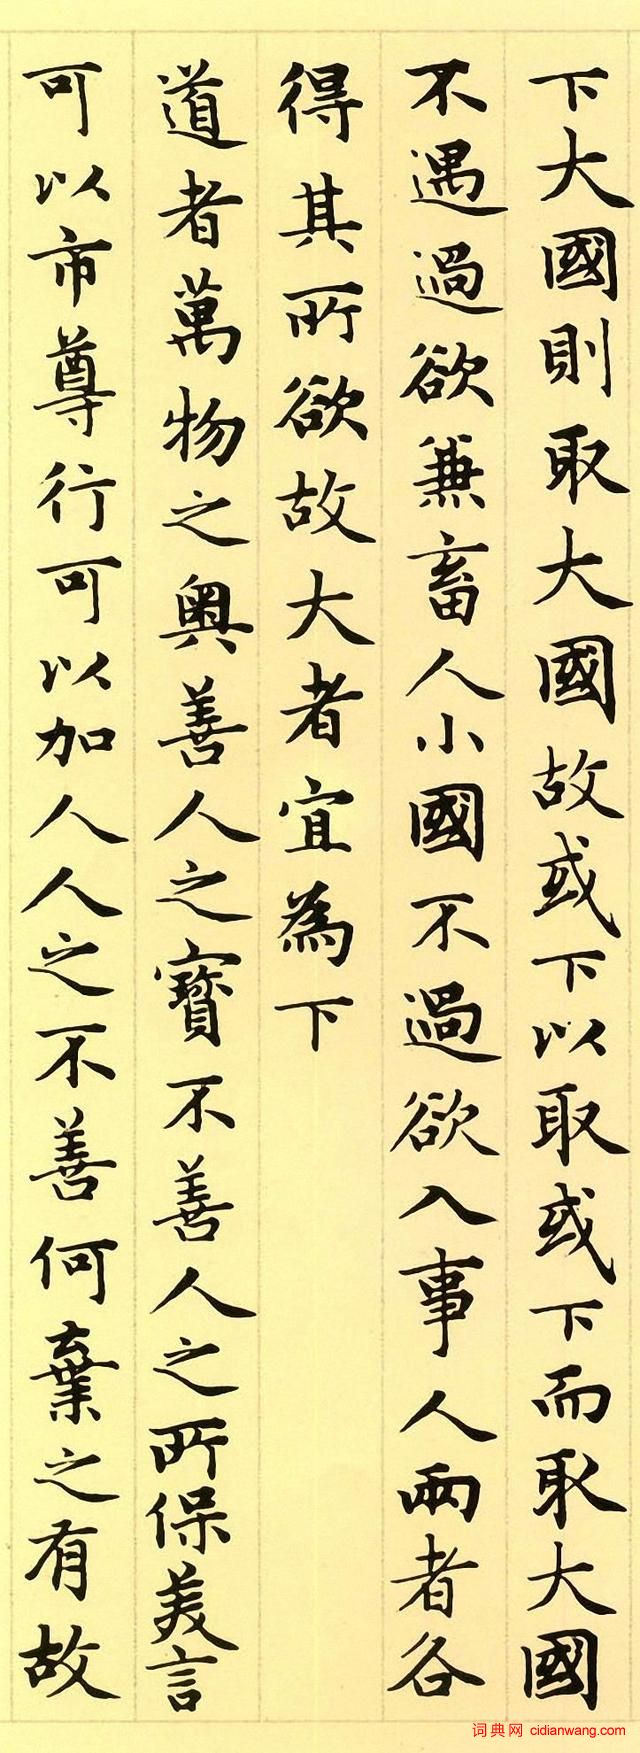 下大國則取大國故或下以取或下而取大國
不遇過欲兼畜人小國不過欲入事人兩者各
得其所欲故大者宜為下
道者萬物之奧善人之寶不善人之所保美言
可以市尊行可以加人人之不善何棄之有故
词典网 cidianwang.com